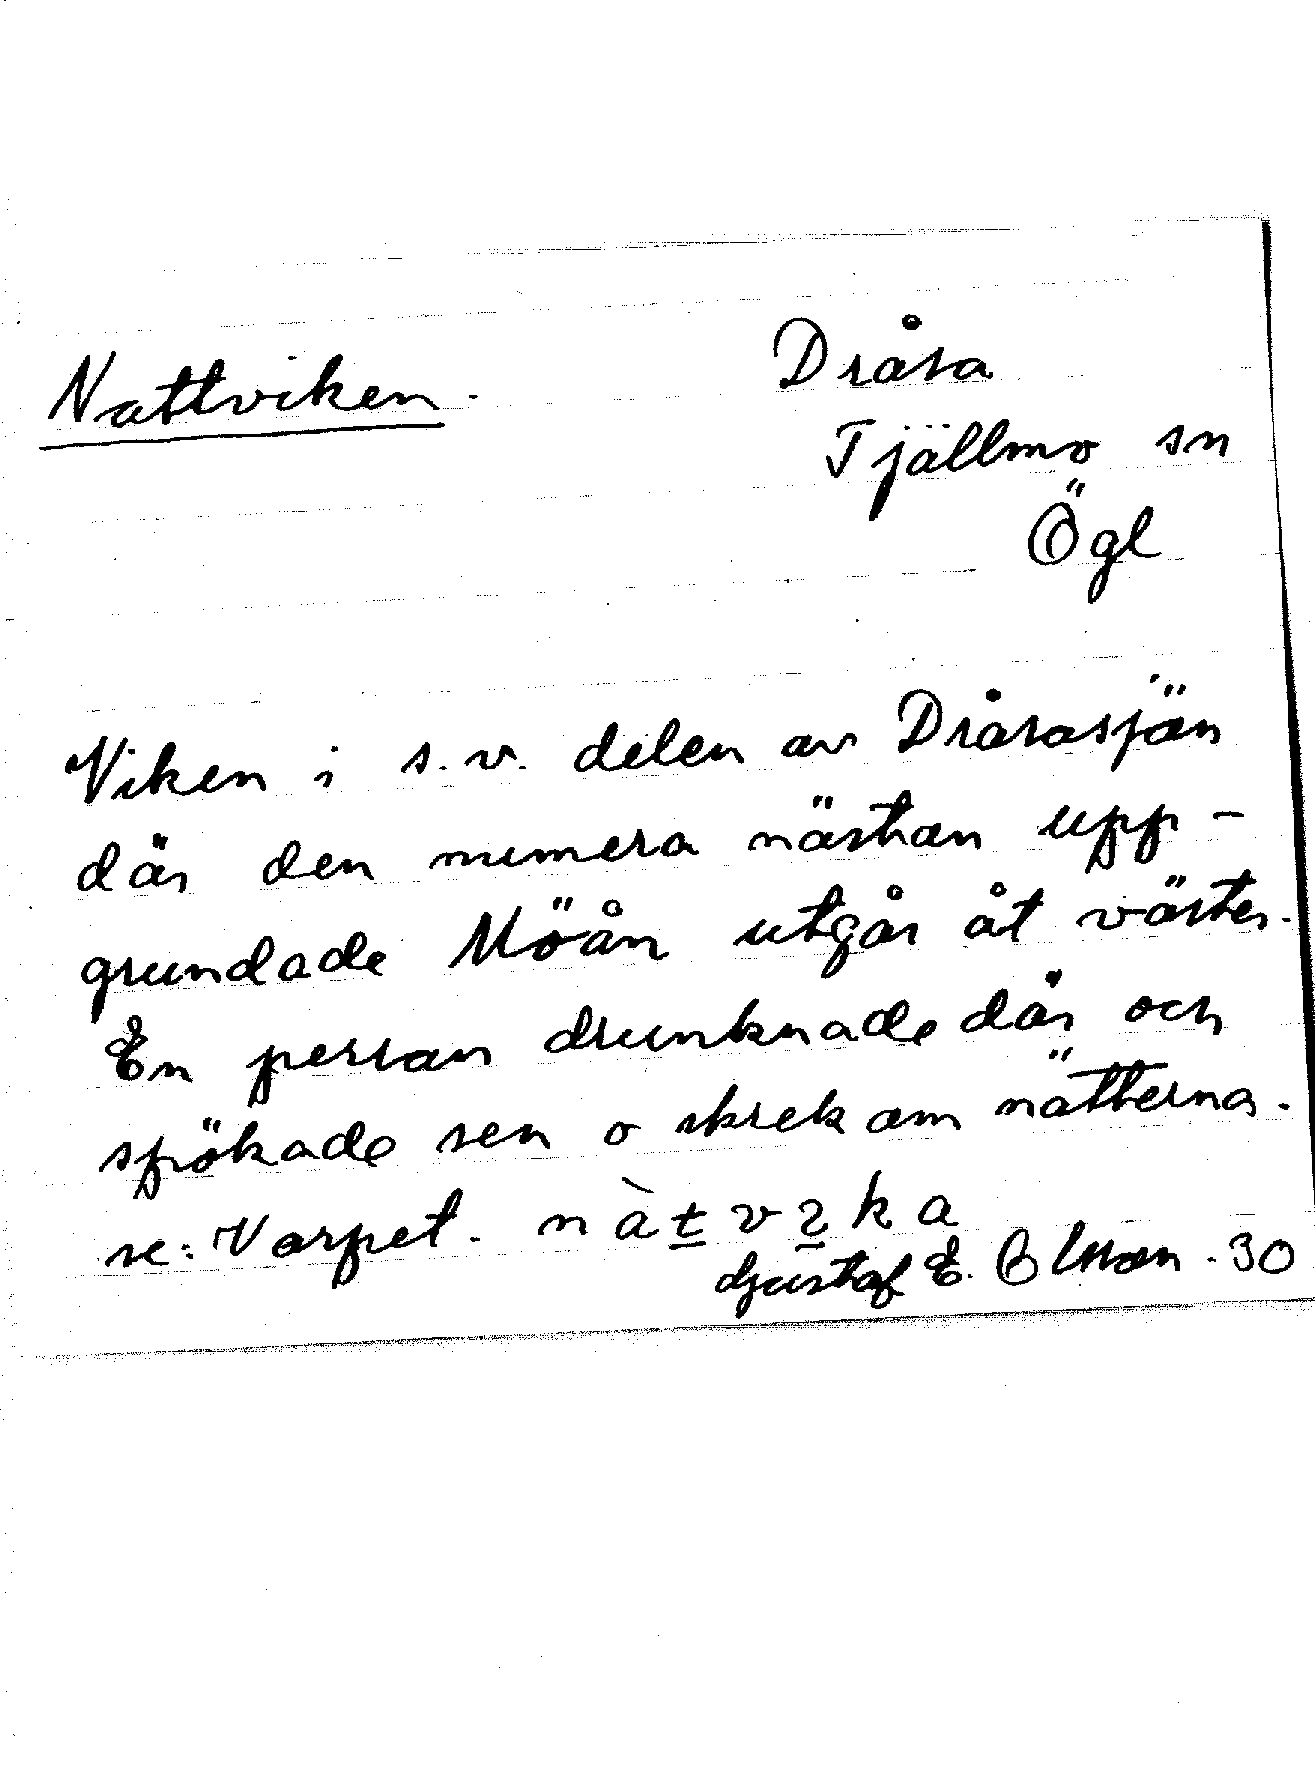 Nattviken.
Dråsa
Tjällmo sn
Ögl
Viken i s.v. delen av Dråsasjön
där den numera nästan upp-
grundade Möån utgår åt väster.
En person drunknade där och
spökade sen o skrek om nätterna.
se: Varpet. nàt̲vı̲ka
Gustaf E. Olsson. 30